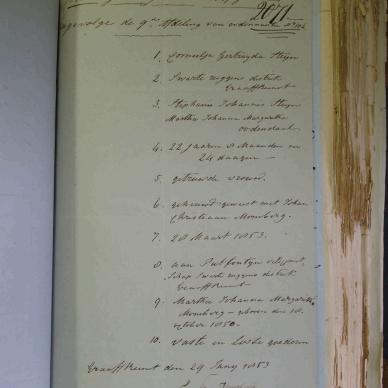 2071
ingevolge de 9de Afdeling van ordonnantie No 104
1. Cornelja Gertruyda Steyn
2. Swarte ruggens district
Graaff Reinet
3. Stephanus Johannes Steyn
Martha Johanna Margaretha
Odendaal
4. 22 jaaren 8 Maanden en
24 daagen
5. getroude vrouw.
6. getrouwd geweest met Johan
Christiaan Momberg.
7. 20 Maart 1853.
8. aan Putfontyn
Swarte ruggens district
Graaff Reinet
9. Martha Johanna Margaretha
Momberg - geboren den 18.
october 1850.
10. vaste en Losse goederen
Graaff Reinet den 29 Juny 1853